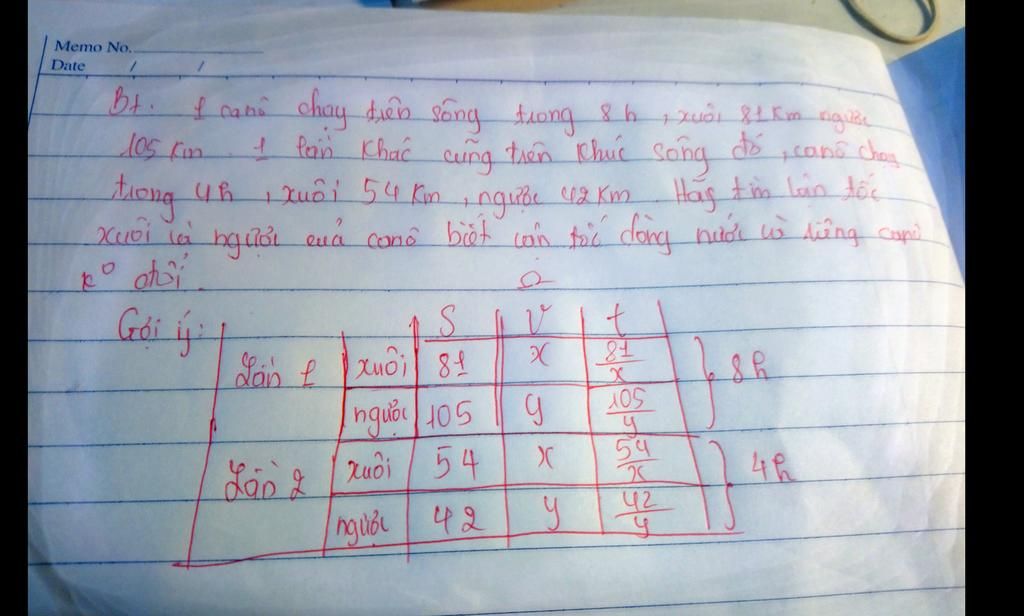 Memo No.
Date / /
Bt. 1 canô chạy trên sông trong 8h, xuôi 81 Km ngược
105 Km. 1 lần khác cũng trên khúc sông đó, canô chạy
trong 4h, xuôi 54 Km, ngược 42 Km. Hãy tìm vận tốc
xuôi và ngược của canô biết vận tốc dòng nước và riêng canô
k° đổi.
Gợi ý:
S V t
Lần 1 xuôi 81 x 81/x 8h
ngược 105 y 105/y
Lần 2 xuôi 54 x 54/x 4h
ngược 42 y 42/y